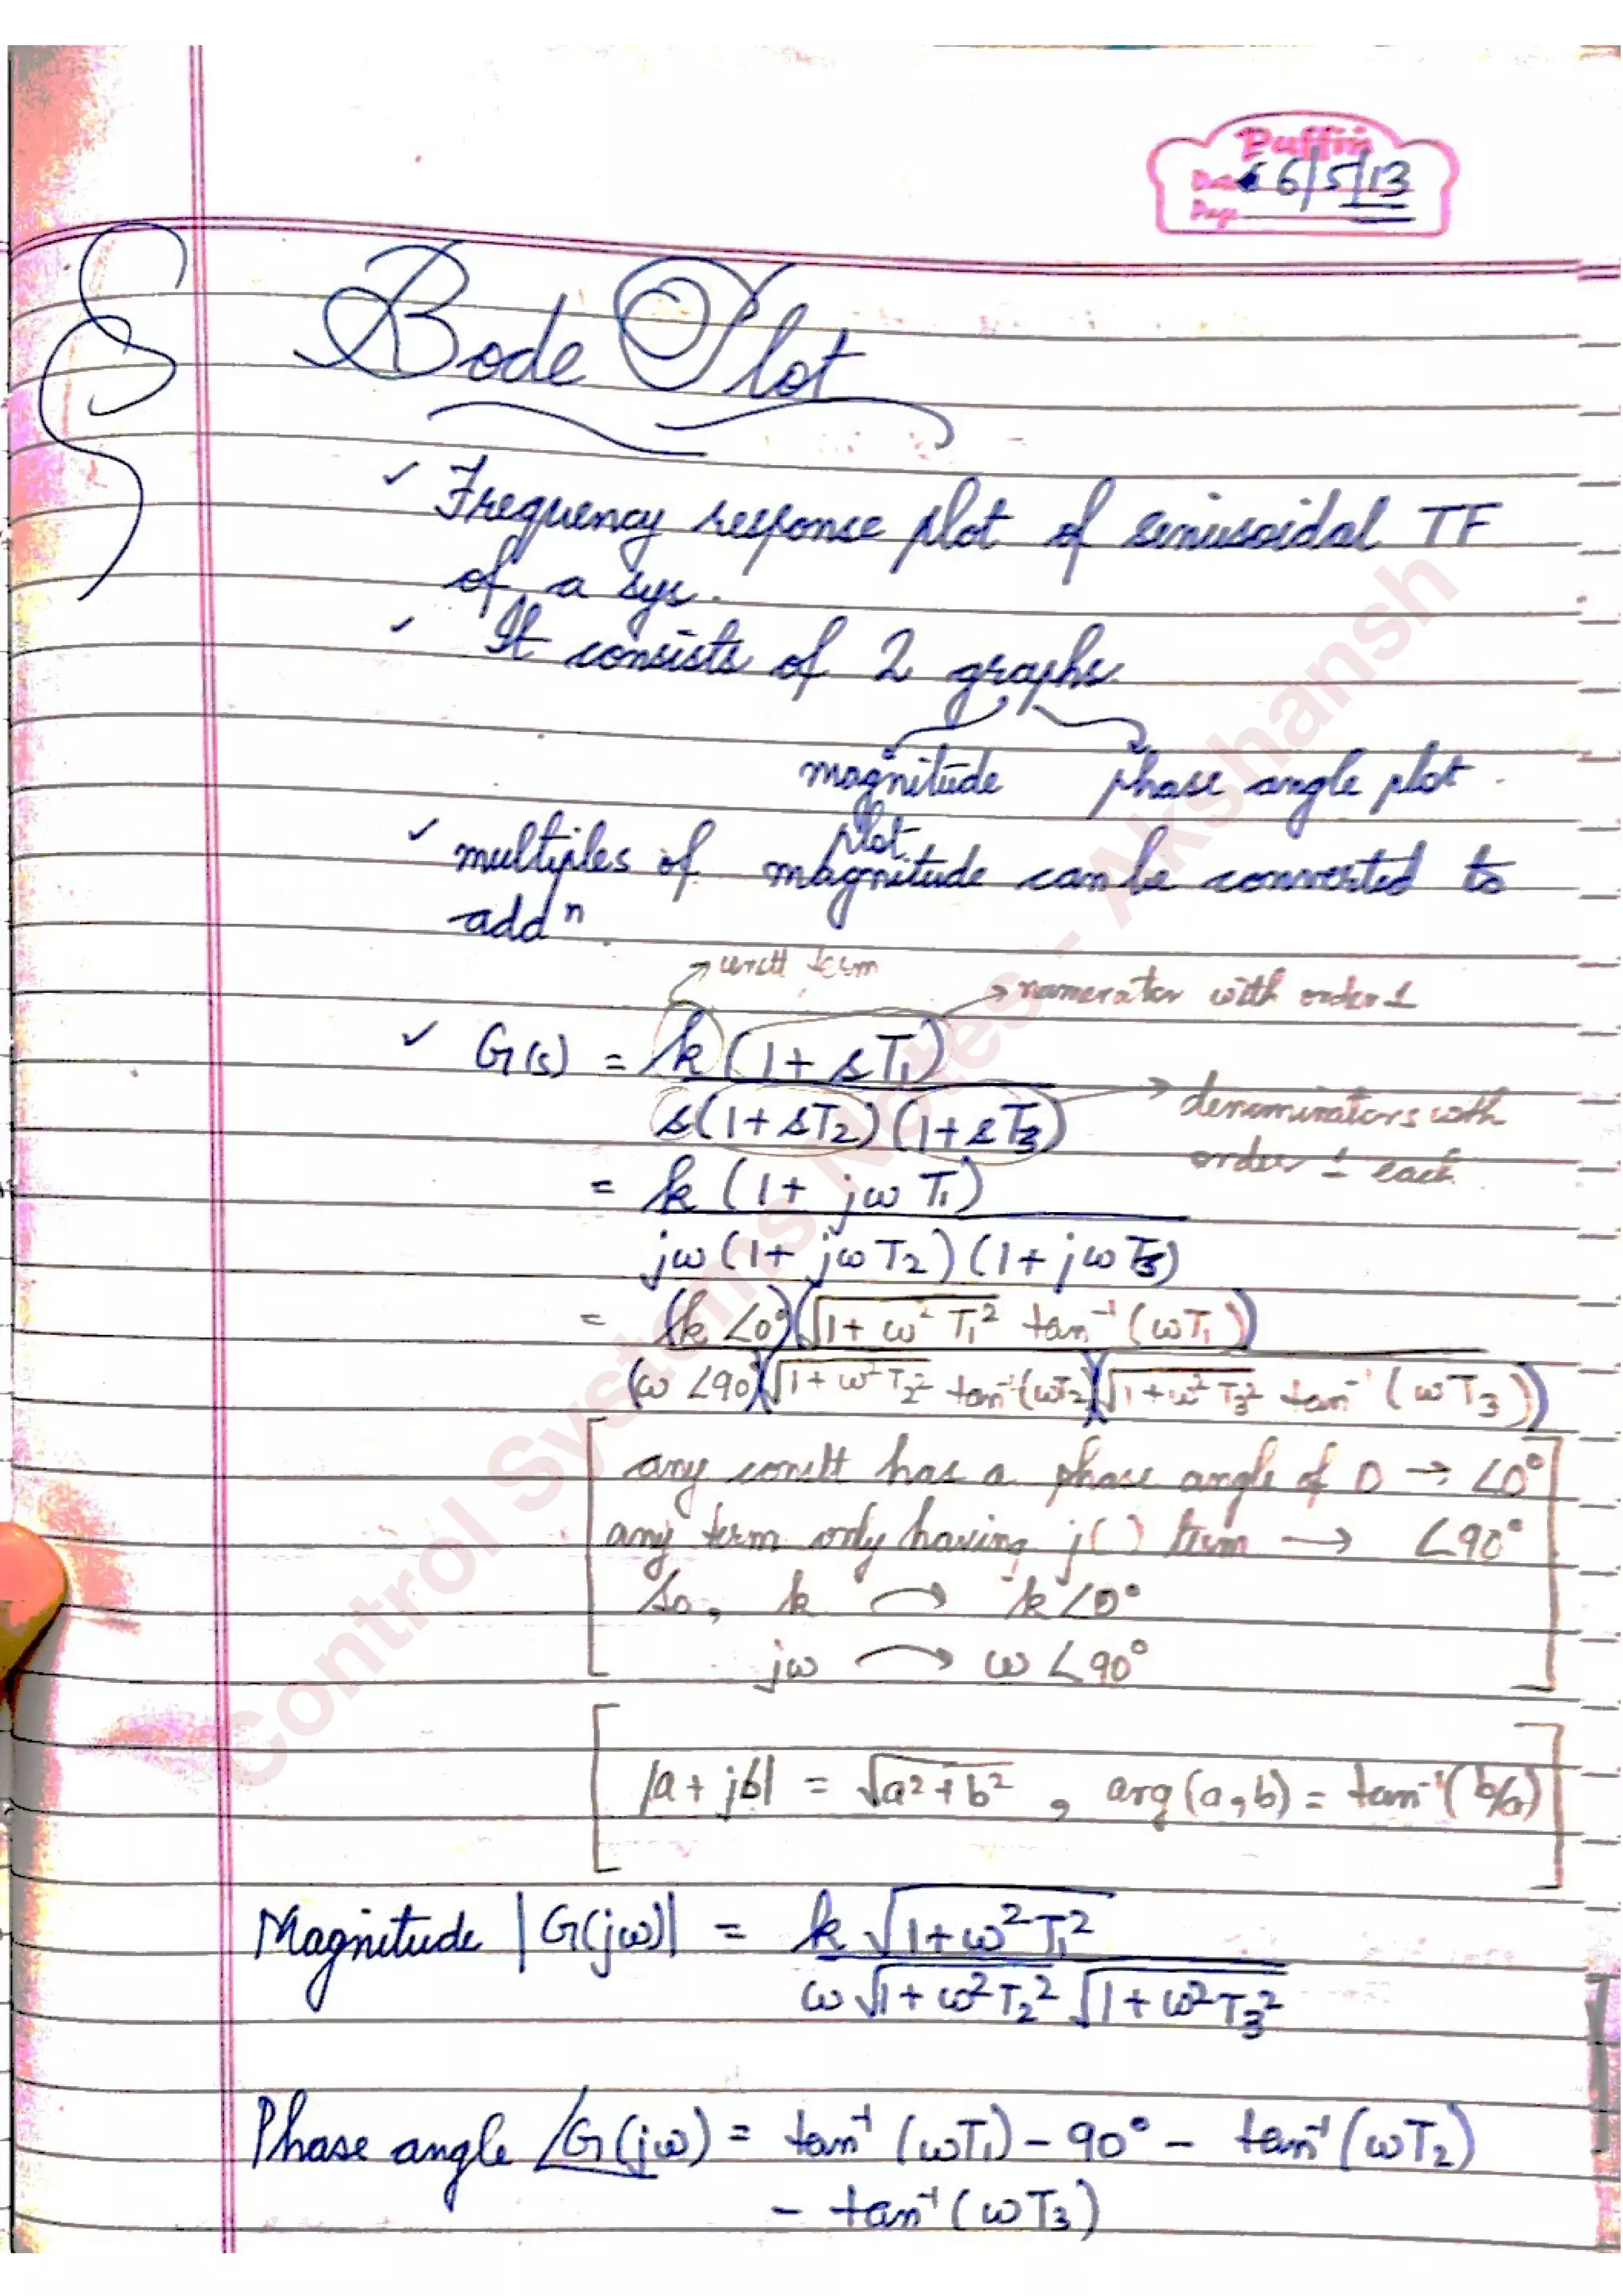 Puffin
Date 6/5/13
Page
Bode Plot
✓ Frequency response plot of sinusoidal TF
of a sys.
✓ It consists of 2 graphs
magnitude phase angle plot.
plot
✓ multiples of magnitude can be converted to
addⁿ.
→ constt term
→ numerator with order 1
✓ G(s) = k(1+sT₁)
s(1+sT₂)(1+sT₃)
→ denominators with
order 1 each.
= k(1+jωT₁)
jω(1+jωT₂)(1+jωT₃)
= (k∠0°)(√1+ω²T₁² tan⁻¹(ωT₁))
(ω∠90)(√1+ω²T₂² tan⁻¹(ωT₂)(√1+ω²T₃² tan⁻¹(ωT₃))
any constt has a phase angle of 0 → ∠0°
any term only having j( ) term → ∠90°
So, k → k∠0°
jω → ω∠90°
|a+jb| = √a²+b² , arg(a,b) = tan⁻¹(b/a)
Magnitude |G(jω)| = k√1+ω²T₁²
ω√1+ω²T₂² √1+ω²T₃²
Phase angle ∠G(jω) = tan⁻¹(ωT₁) - 90° - tan⁻¹(ωT₂)
- tan⁻¹(ωT₃)
Control Systems Notes - Akshansh